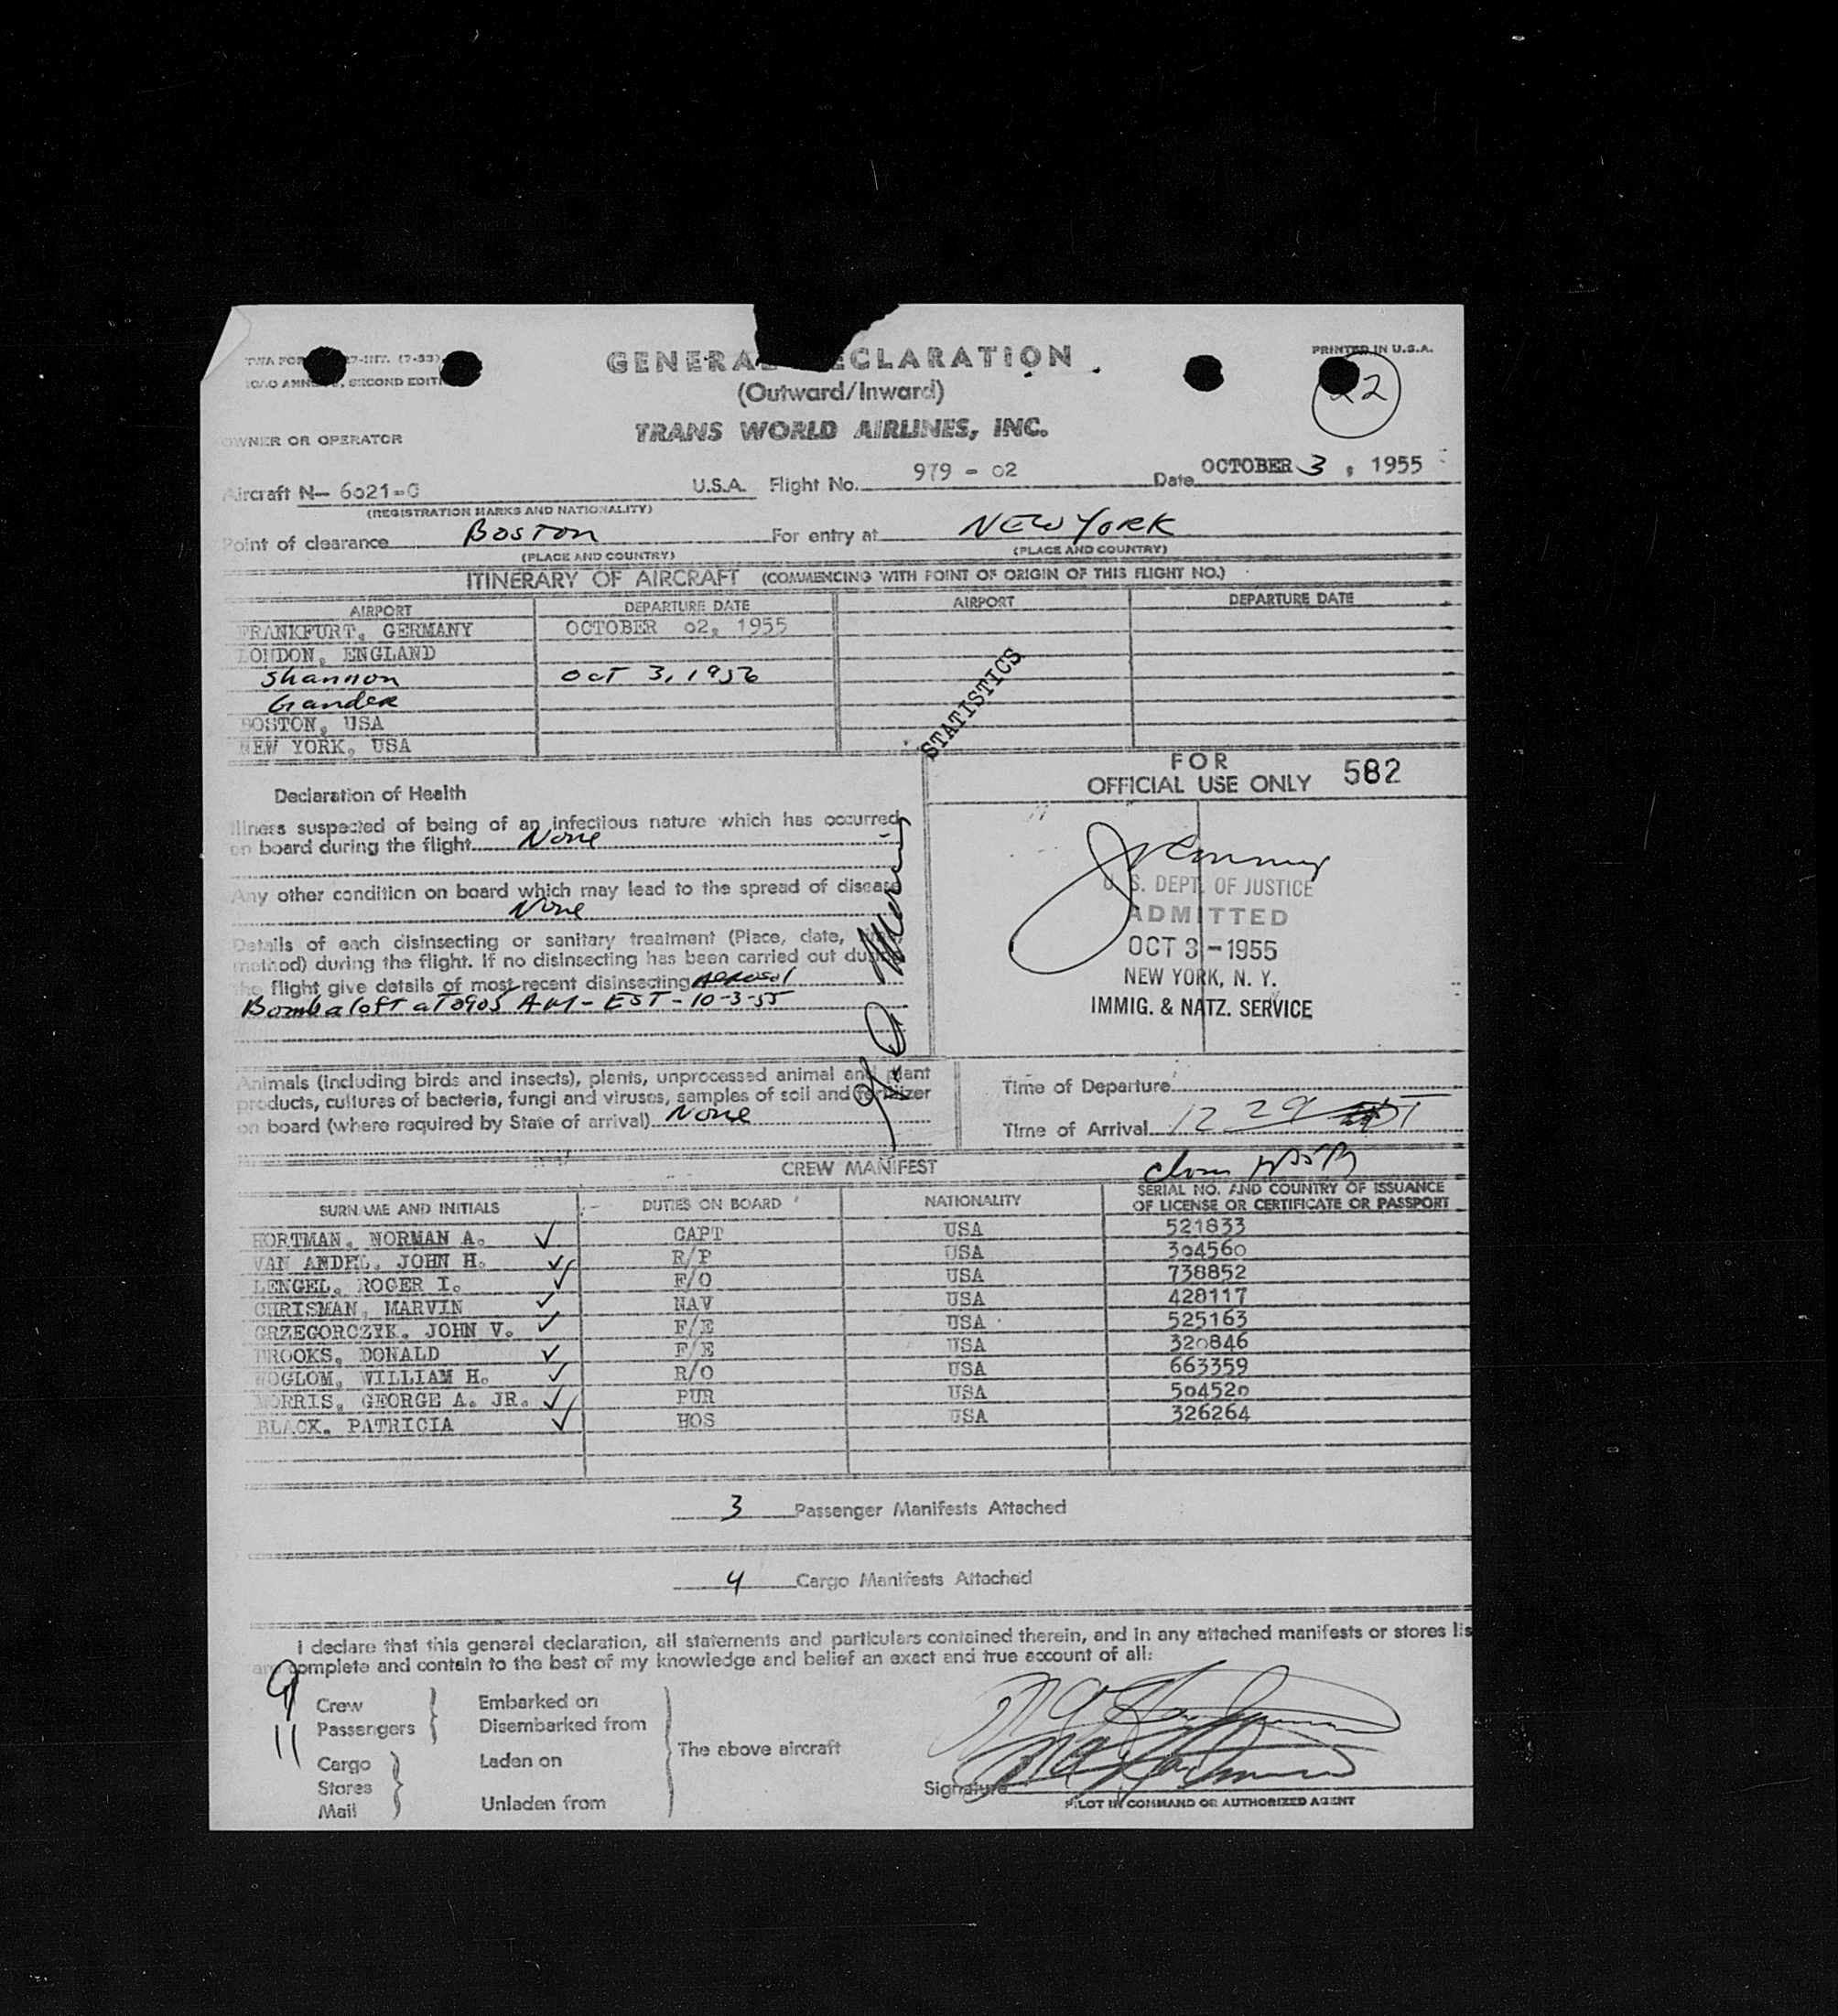 TWA FOR 27-INT. (7-53)
PRINTED IN U.S.A.
GENERA ECLARATION
ICAO ANNE 9, SECOND EDITI
(Outward/Inward)
22
TRANS WORLD AIRLINES, INC.
OWNER OR OPERATOR
Aircraft N- 6021-C U.S.A. Flight No. 979 - 02 Date OCTOBER 3, 1955
(REGISTRATION MARKS AND NATIONALITY)
Point of clearance Boston For entry at NEW YORK
(PLACE AND COUNTRY) (PLACE AND COUNTRY)
ITINERARY OF AIRCRAFT (COMMENCING WITH POINT OF ORIGIN OF THIS FLIGHT NO.)
AIRPORT DEPARTURE DATE AIRPORT DEPARTURE DATE
FRANKFURT, GERMANY OCTOBER 02, 1955
LONDON, ENGLAND
Shannon OCT 3, 1956
Gander
BOSTON, USA
NEW YORK, USA
STATISTICS
FOR
OFFICIAL USE ONLY 582
Declaration of Health
Illness suspected of being of an infectious nature which has occurred
on board during the flight None
Any other condition on board which may lead to the spread of disease
None
Details of each disinsecting or sanitary treatment (Place, date,
method) during the flight. If no disinsecting has been carried out during
the flight give details of most recent disinsecting Aerosol
Bomb aloft at 0905 AM - EST - 10-3-55
U. S. DEPT. OF JUSTICE
ADMITTED
OCT 3 - 1955
NEW YORK, N. Y.
IMMIG. & NATZ. SERVICE
Animals (including birds and insects), plants, unprocessed animal and plant
products, cultures of bacteria, fungi and viruses, samples of soil and fertilizer
on board (where required by State of arrival) None
Time of Departure
Time of Arrival 12 29
CREW MANIFEST
SURNAME AND INITIALS DUTIES ON BOARD NATIONALITY SERIAL NO. AND COUNTRY OF ISSUANCE
OF LICENSE OR CERTIFICATE OR PASSPORT
HORTMAN, NORMAN A. ✓ CAPT USA 521833
VAN ANDEL, JOHN H. ✓ R/P USA 304560
LENGEL, ROGER I. ✓ F/O USA 738852
CHRISMAN, MARVIN ✓ NAV USA 428117
GRZEGORCZYK, JOHN V. ✓ F/E USA 525163
BROOKS, DONALD ✓ F/E USA 320846
WOGLOM, WILLIAM H. ✓ R/O USA 663359
MORRIS, GEORGE A. JR. ✓ PUR USA 504520
BLACK, PATRICIA ✓ HOS USA 326264
3 Passenger Manifests Attached
4 Cargo Manifests Attached
I declare that this general declaration, all statements and particulars contained therein, and in any attached manifests or stores lis
are complete and contain to the best of my knowledge and belief an exact and true account of all:
9 Crew
11 Passengers
Embarked on
Disembarked from
Cargo
Stores
Mail
Laden on
Unladen from
The above aircraft
Signature
PILOT IN COMMAND OR AUTHORIZED AGENT